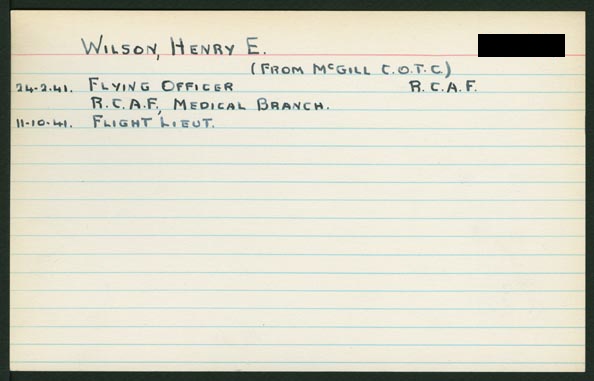 WILSON, HENRY E.
(FROM McGILL C.O.T.C.)
24-2-41. FLYING OFFICER R.C.A.F.
R.C.A.F., MEDICAL BRANCH.
11-10-41. FLIGHT LIEUT.